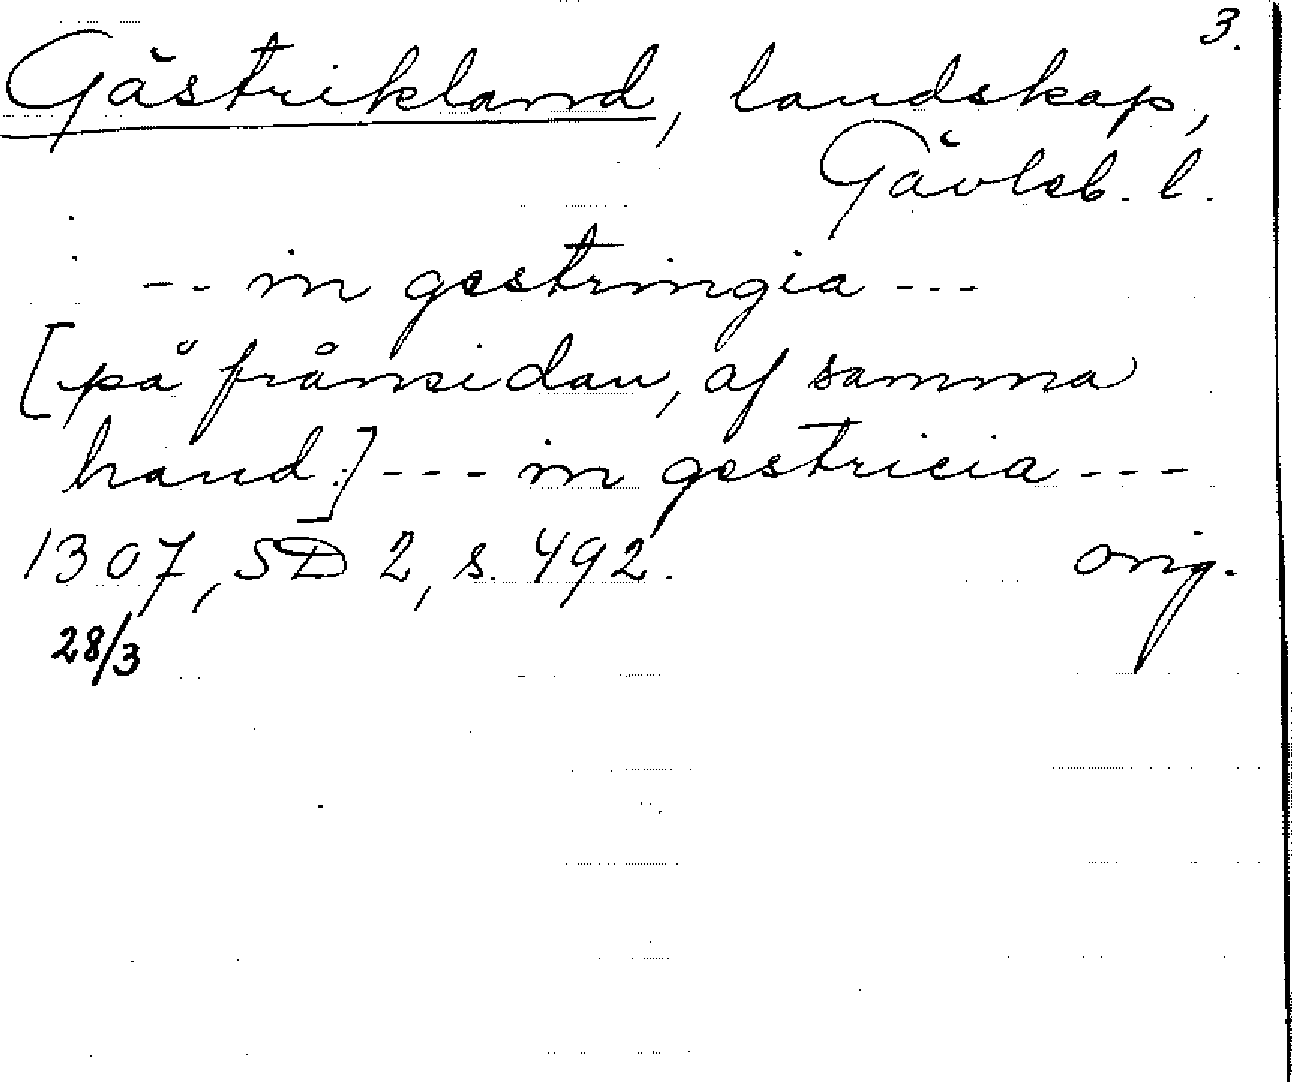 3.
Gästrikland, landskap,
Gävleb. l.
-- in gestringia ---
[på frånsidan, af samma
hand:] --- in gestricia ---
1307, SD 2, s. 492. orig.
28/3